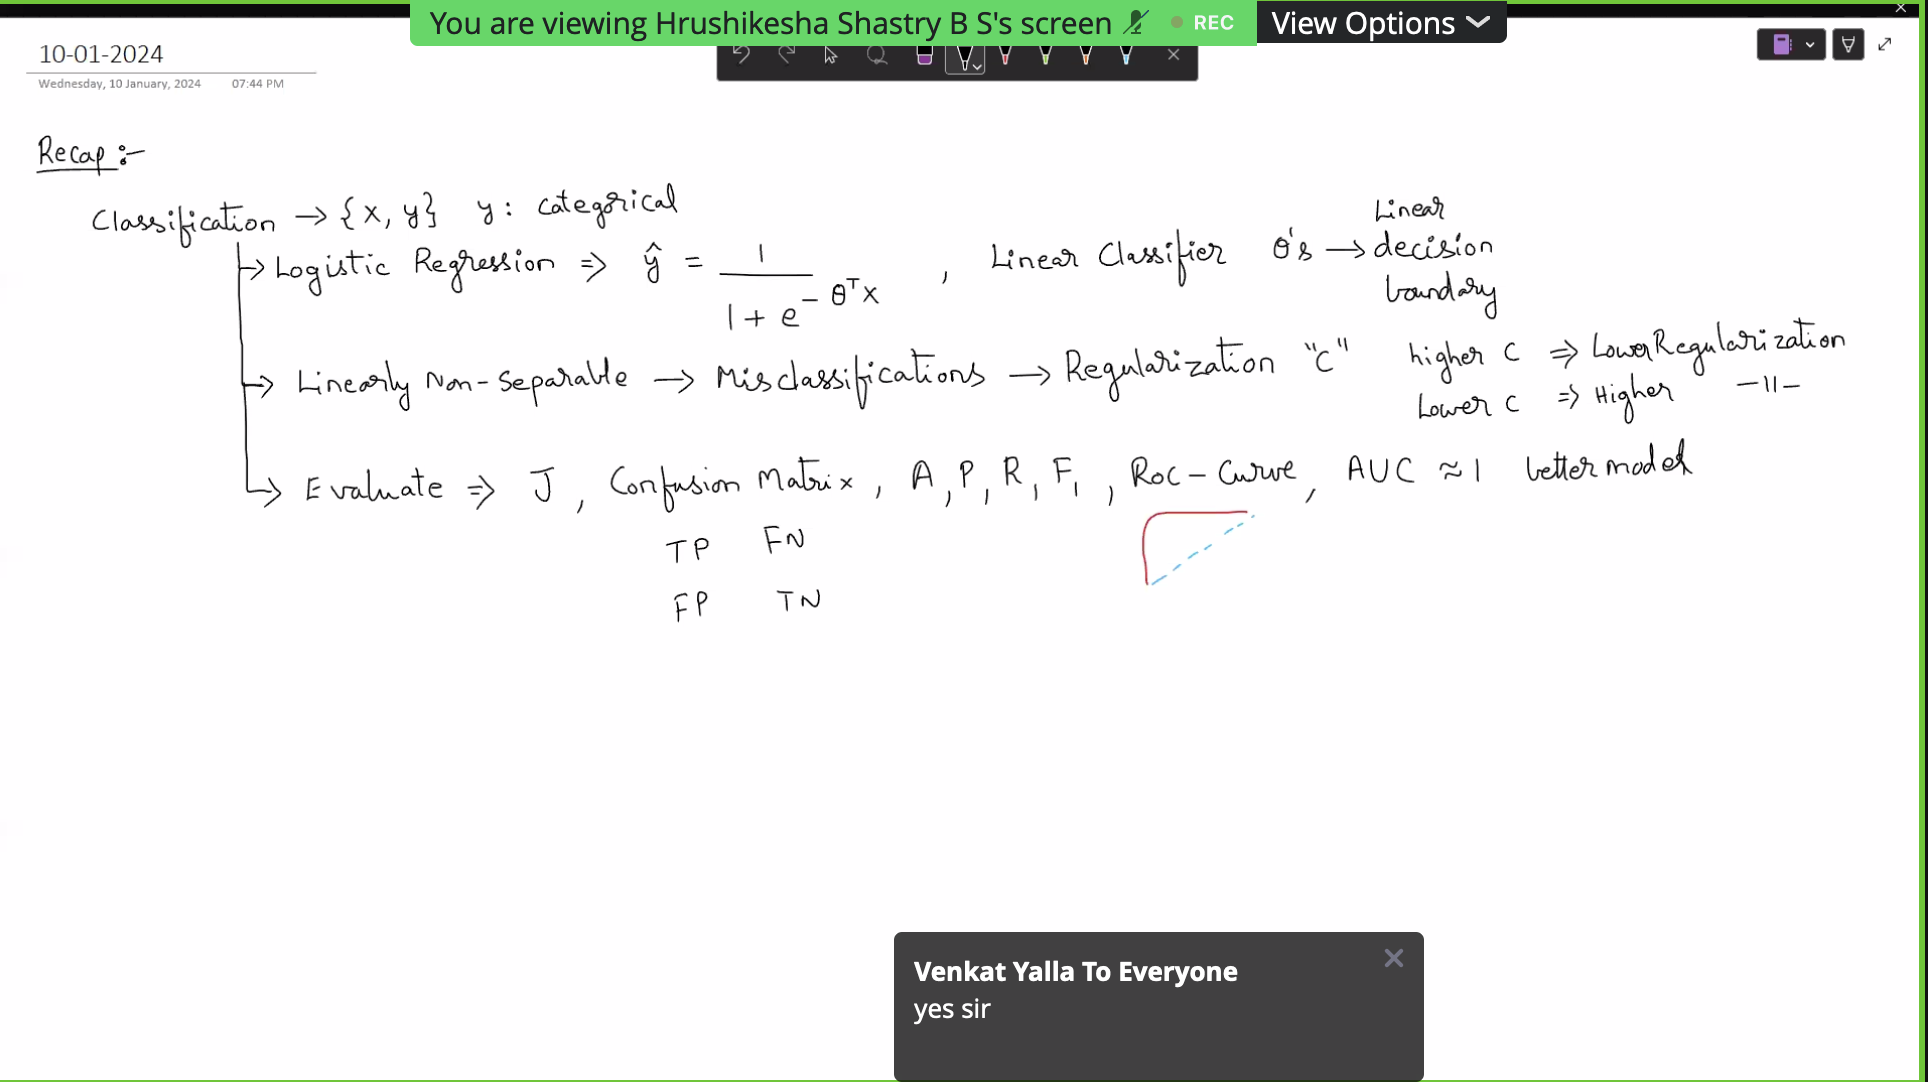 You are viewing Hrushikesha Shastry B S's screen REC View Options
10-01-2024
Wednesday, 10 January, 2024 07:44 PM
Recap :-
Classification → {x, y} y : categorical
→ Logistic Regression ⇒ ŷ = 1 / (1 + e^(-θᵀx)) , Linear Classifier θ's → Linear decision boundary
→ Linearly Non-Separable → Misclassifications → Regularization "C" higher C ⇒ Lower Regularization
Lower C ⇒ Higher -11-
→ Evaluate ⇒ J , Confusion Matrix , A , P , R , F₁ , Roc-Curve , AUC ≈ 1 better model
TP FN
FP TN
Venkat Yalla To Everyone
yes sir